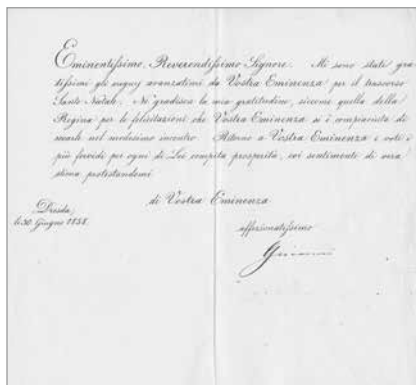 Eminentissimo, Reverendissimo Signore. Mi sono stati gra
tissimi gli augurj avanzatimi da Vostra Eminenza per il trascorso
Santo Natale. Ne gradisca la mia gratitudine, siccome quella della
Regina per le felicitazioni che Vostra Eminenza si è compiaciuta di
recarle nel medesimo incontro. Ritorno a Vostra Eminenza i voti i
più fervidi per ogni di Lei compita prosperità, coi sentimenti di vera
stima protestandomi
di Vostra Eminenza
Dresda,
li 30. Giugno 1858.
affezionatissimo
Giovanni